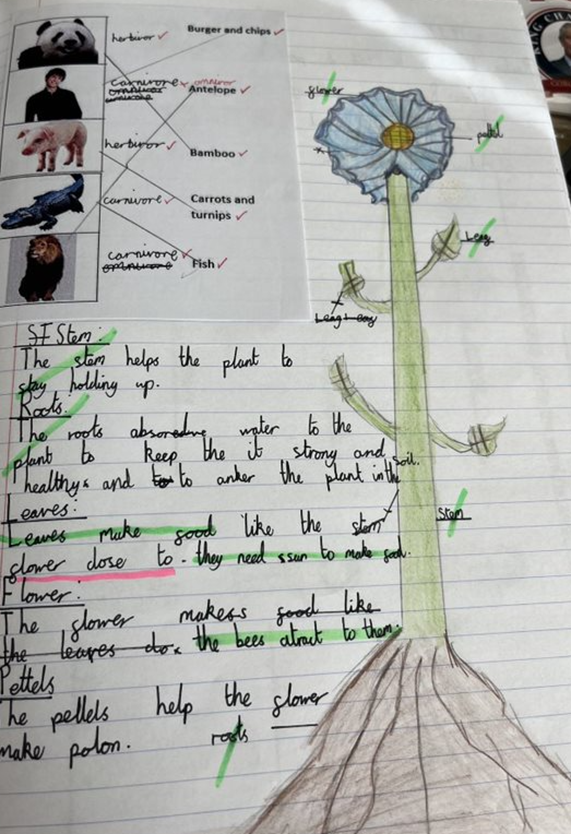 herbivor
Burger and chips
carnivore
omnivor
Antelope
herbivor
Bamboo
carnivore
Carrots and
turnips
carnivore
Fish
glower
pettel
Leag
Leag Leag
SF Stem:
The stem helps the plant to
stay holding up.
Roots:
The roots absoredive water to the
plant to keep the it strong and
healthy and to to anker the plant in the
soil.
Leaves:
Leaves make good like the stem
glower dose to. they need ssun to make food.
Stem
Flower:
The glower makes good like
the leaves do. the bees atract to them.
Pettels
The pellels help the glower
make polon.
roots
KING CHA